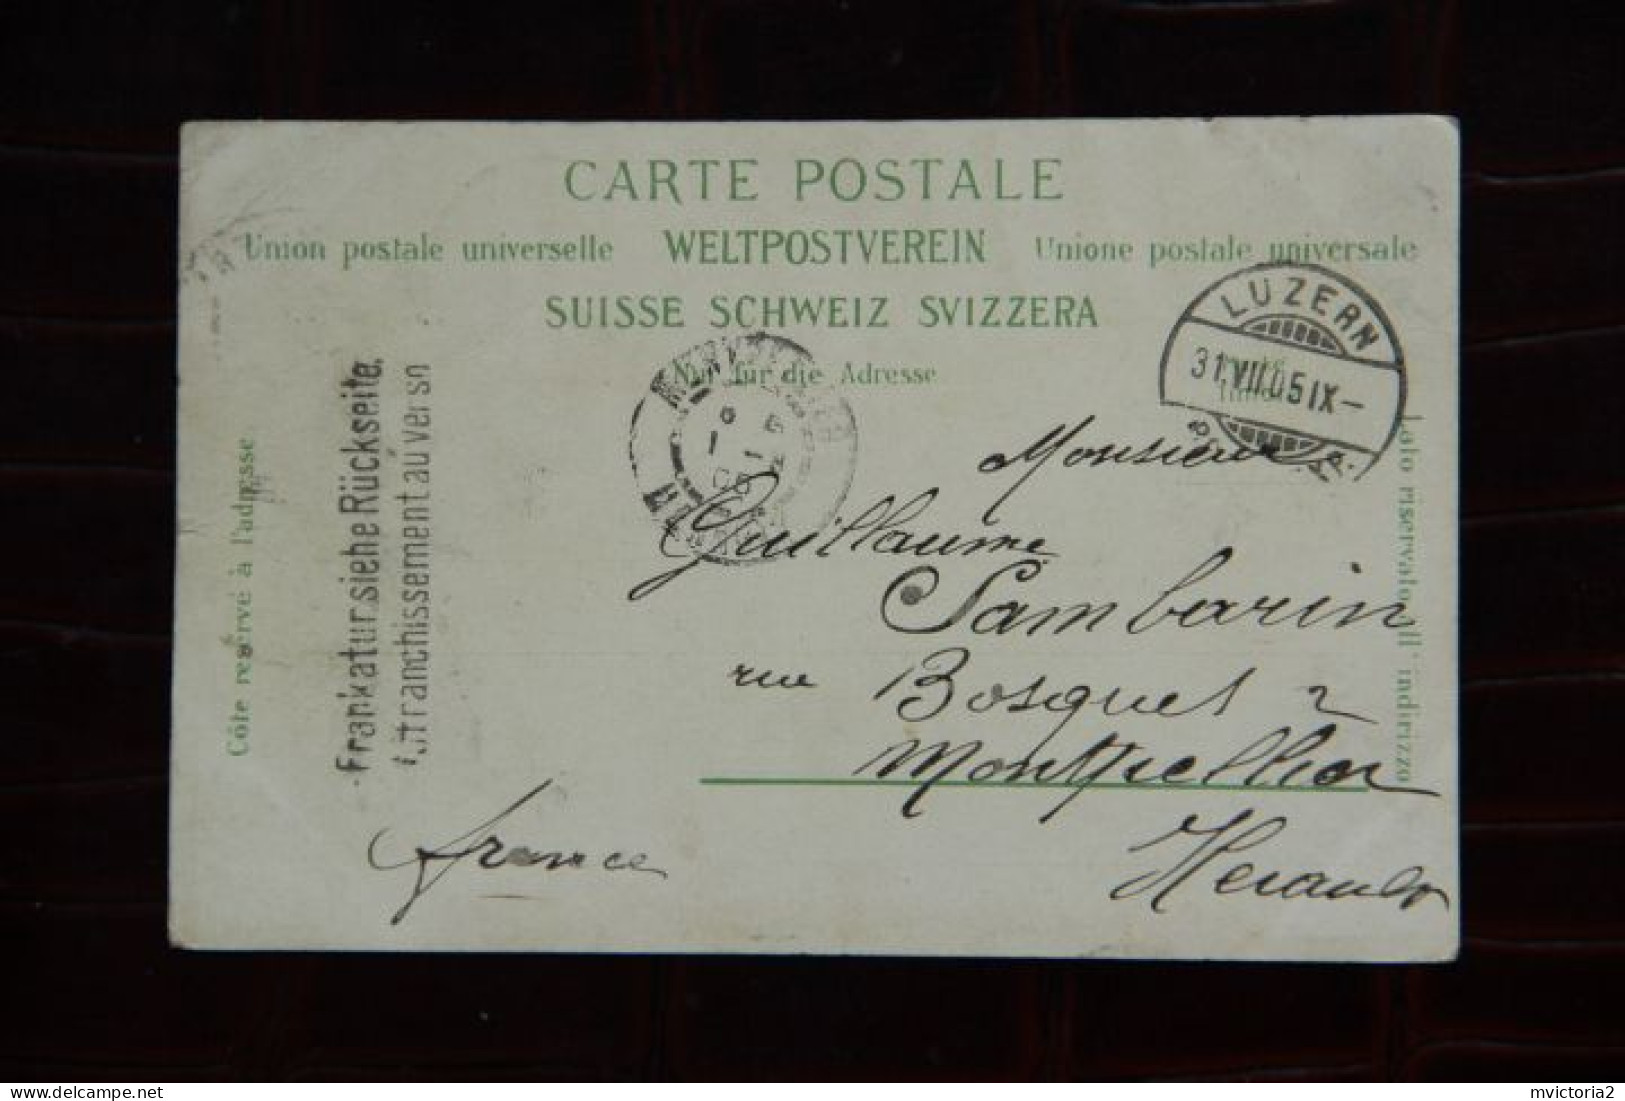 CARTE POSTALE
Union postale universelle WELTPOSTVEREIN Unione postale universale
SUISSE SCHWEIZ SVIZZERA
Nur für die Adresse
LUZERN
31.VII.05 IX-
Côté réservé à l'adresse
Frankatur siehe Rückseite.
Affranchissement au verso
Lato riservato all' indirizzo
Monsieur
Guillaume
Sambarin
rue Bosquet 2
Montpellier
Herault
france
mvictoria2